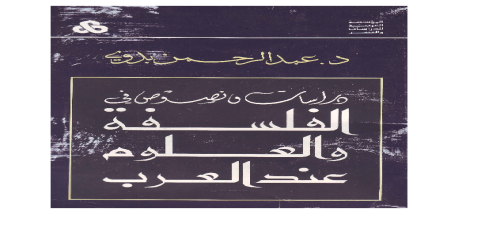 المؤسسة
العربية
للدراسات
والنشر
د. عبد الرحمن بدوي
دراسات ونصوص في
الفلسفة
والعلوم
عند العرب